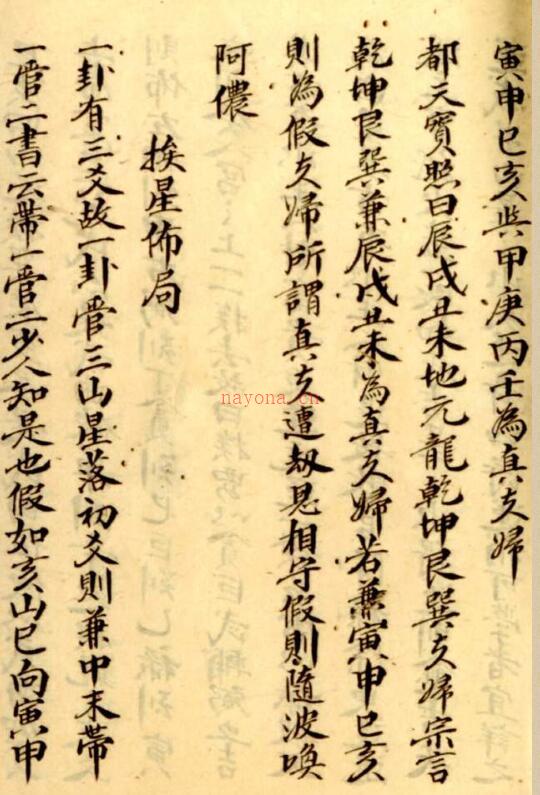 寅申巳亥與甲庚丙壬為真夫婦
都天寶照曰辰戌丑未地元龍乾坤艮巽夫婦宗言
乾坤艮巽兼辰戌丑未為真夫婦若兼寅申巳亥
則為假夫婦所謂真夫遭刼相守假則隨波喚
阿儂
挨星佈局
一卦有三爻故一卦管三山星落初爻則兼中末帶
一管二書云帶一管二少人知是也假如亥山巳向寅申
nayona.cn